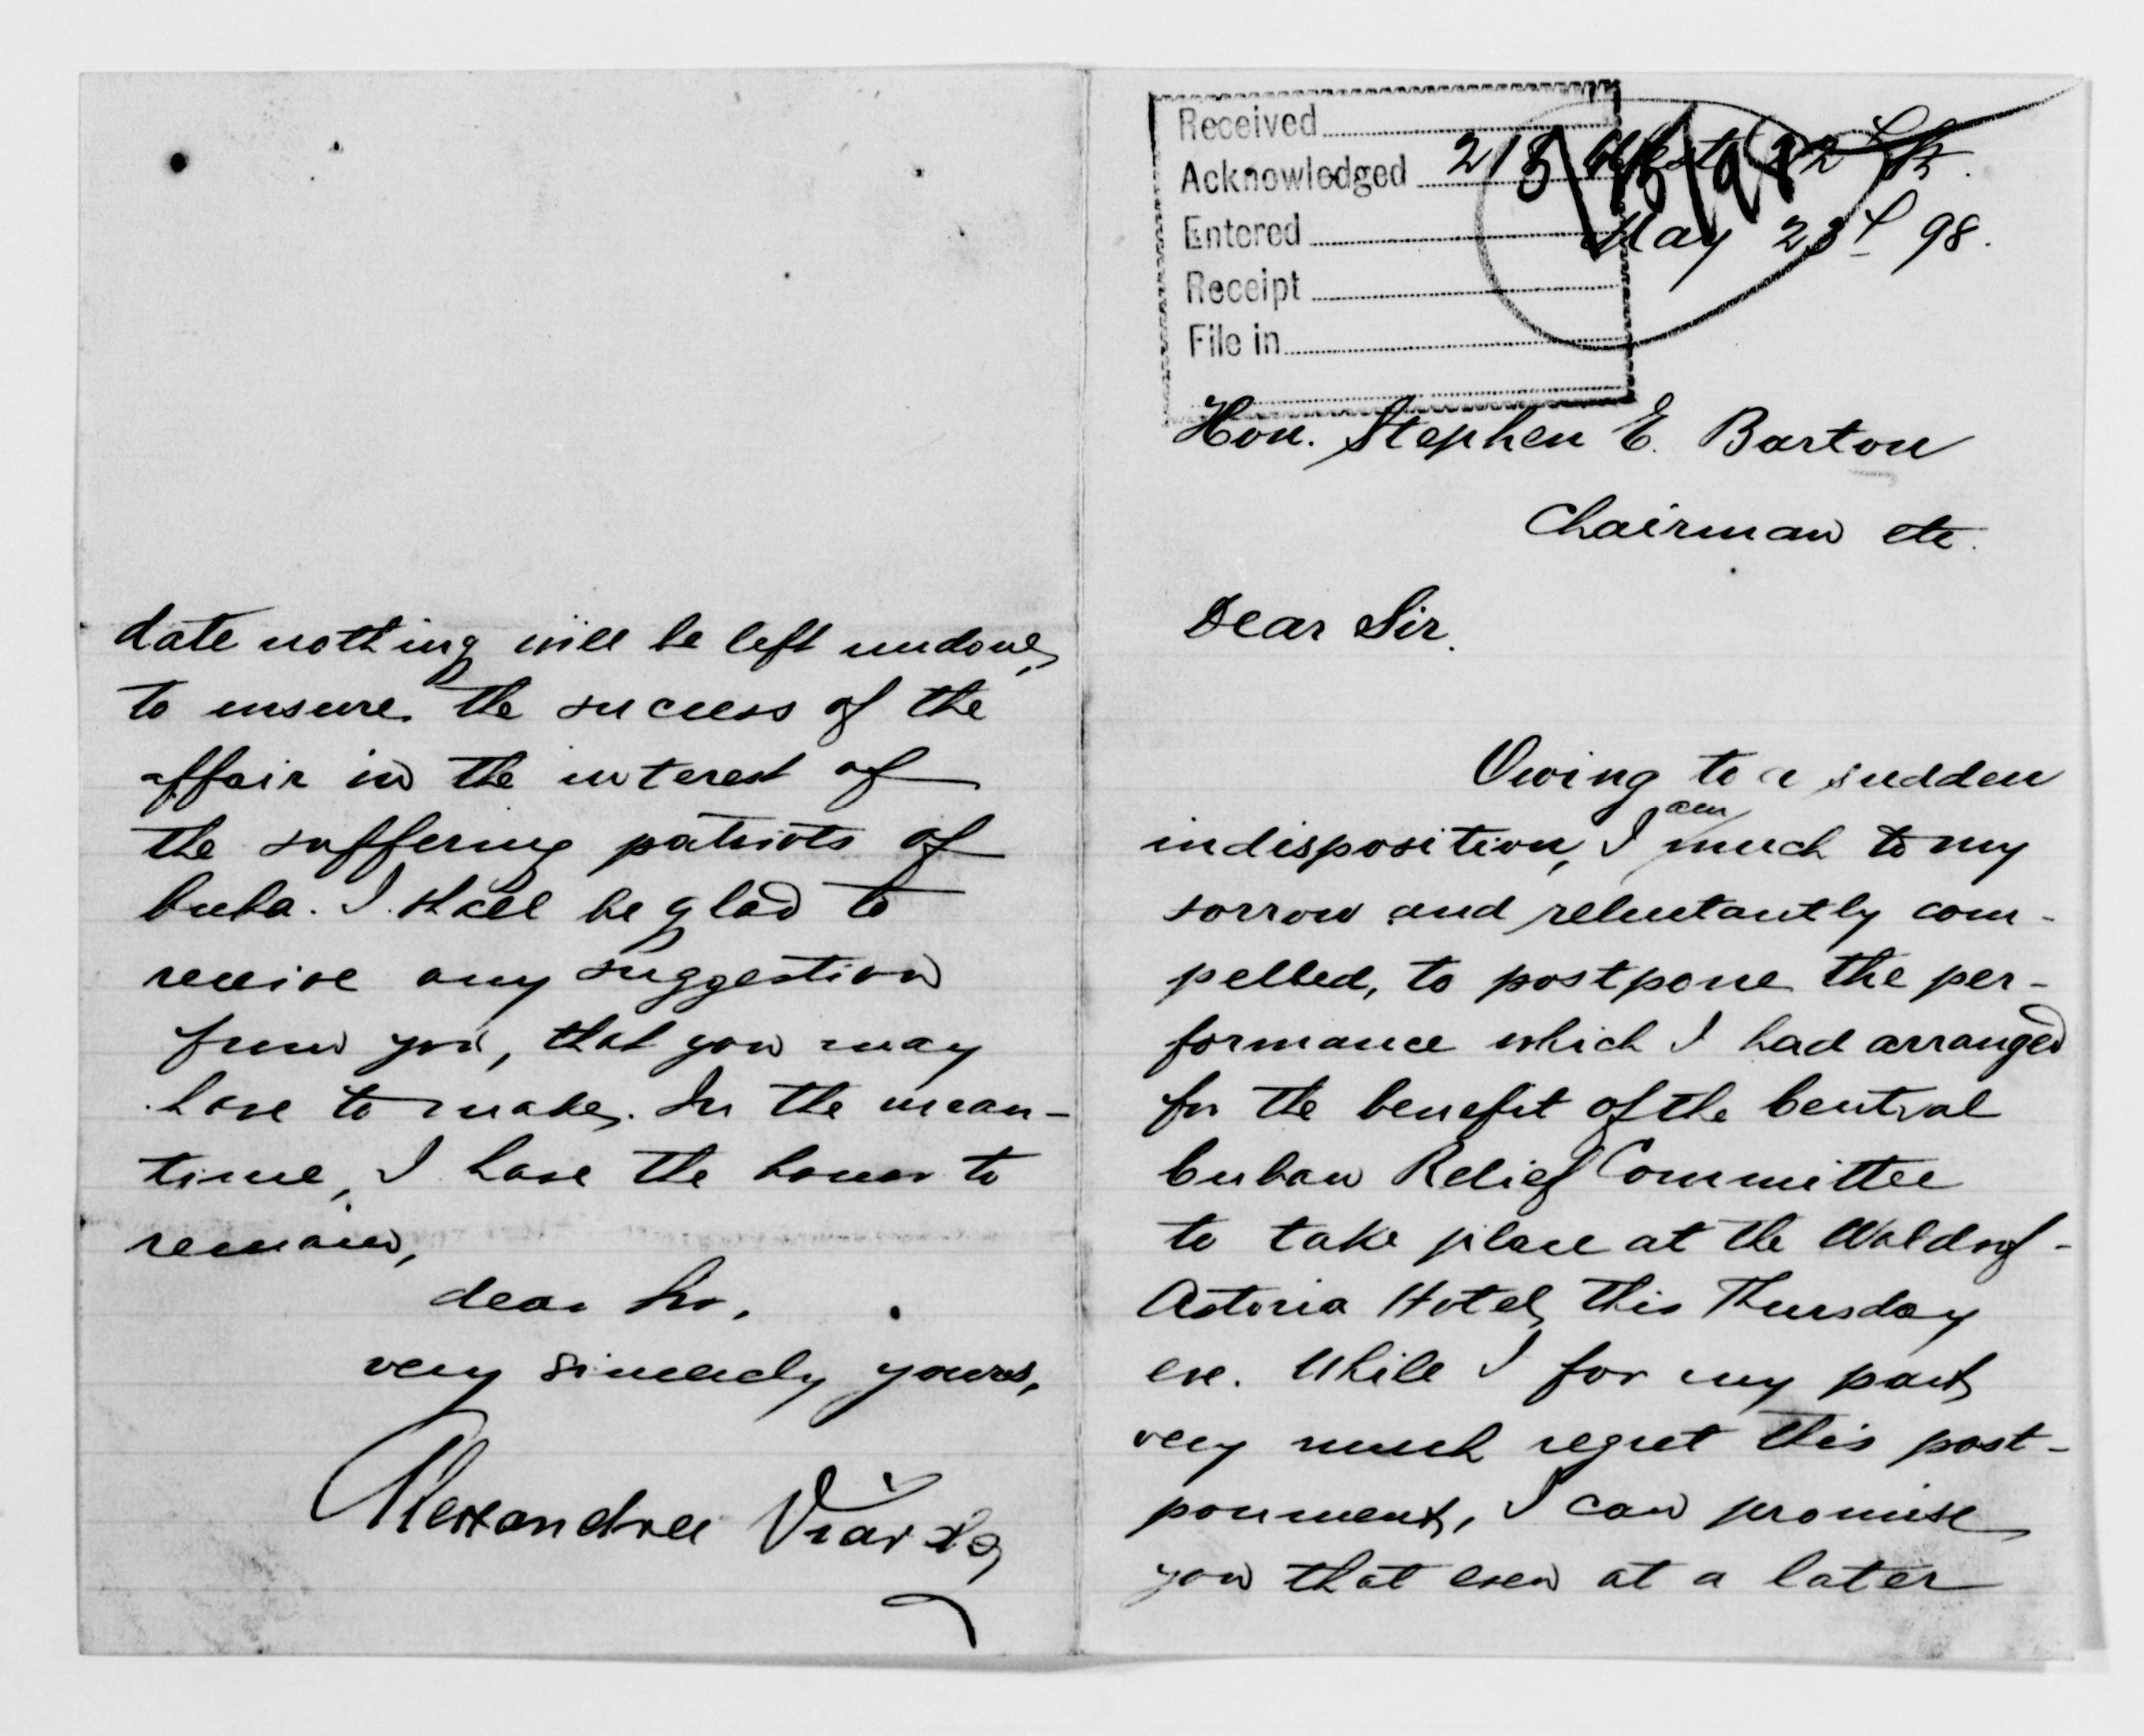 Received
Acknowledged
Entered
Receipt
File in
5/23/98
May 23d 98.
Hon. Stephen E. Barton
Chairman etc.
Dear Sir.
Owing to a sudden
indisposition, I am much to my
sorrow and reluctantly com-
pelled, to postpone the per-
formance which I had arranged
for the benefit of the Central
Cuban Relief Committee
to take place at the Waldorf-
Astoria Hotel, this Thursday
eve. While I for my part,
very much regret this post-
ponment, I can promise
you that even at a later
date nothing will be left undone,
to insure the success of the
affair in the interest of
the suffering patriots of
Cuba. I shall be glad to
receive any suggestion
from you, that you may
have to make. In the mean-
time, I have the honor to
remain,
dear Sir,
very sincerely yours,
Alexandra Viarda